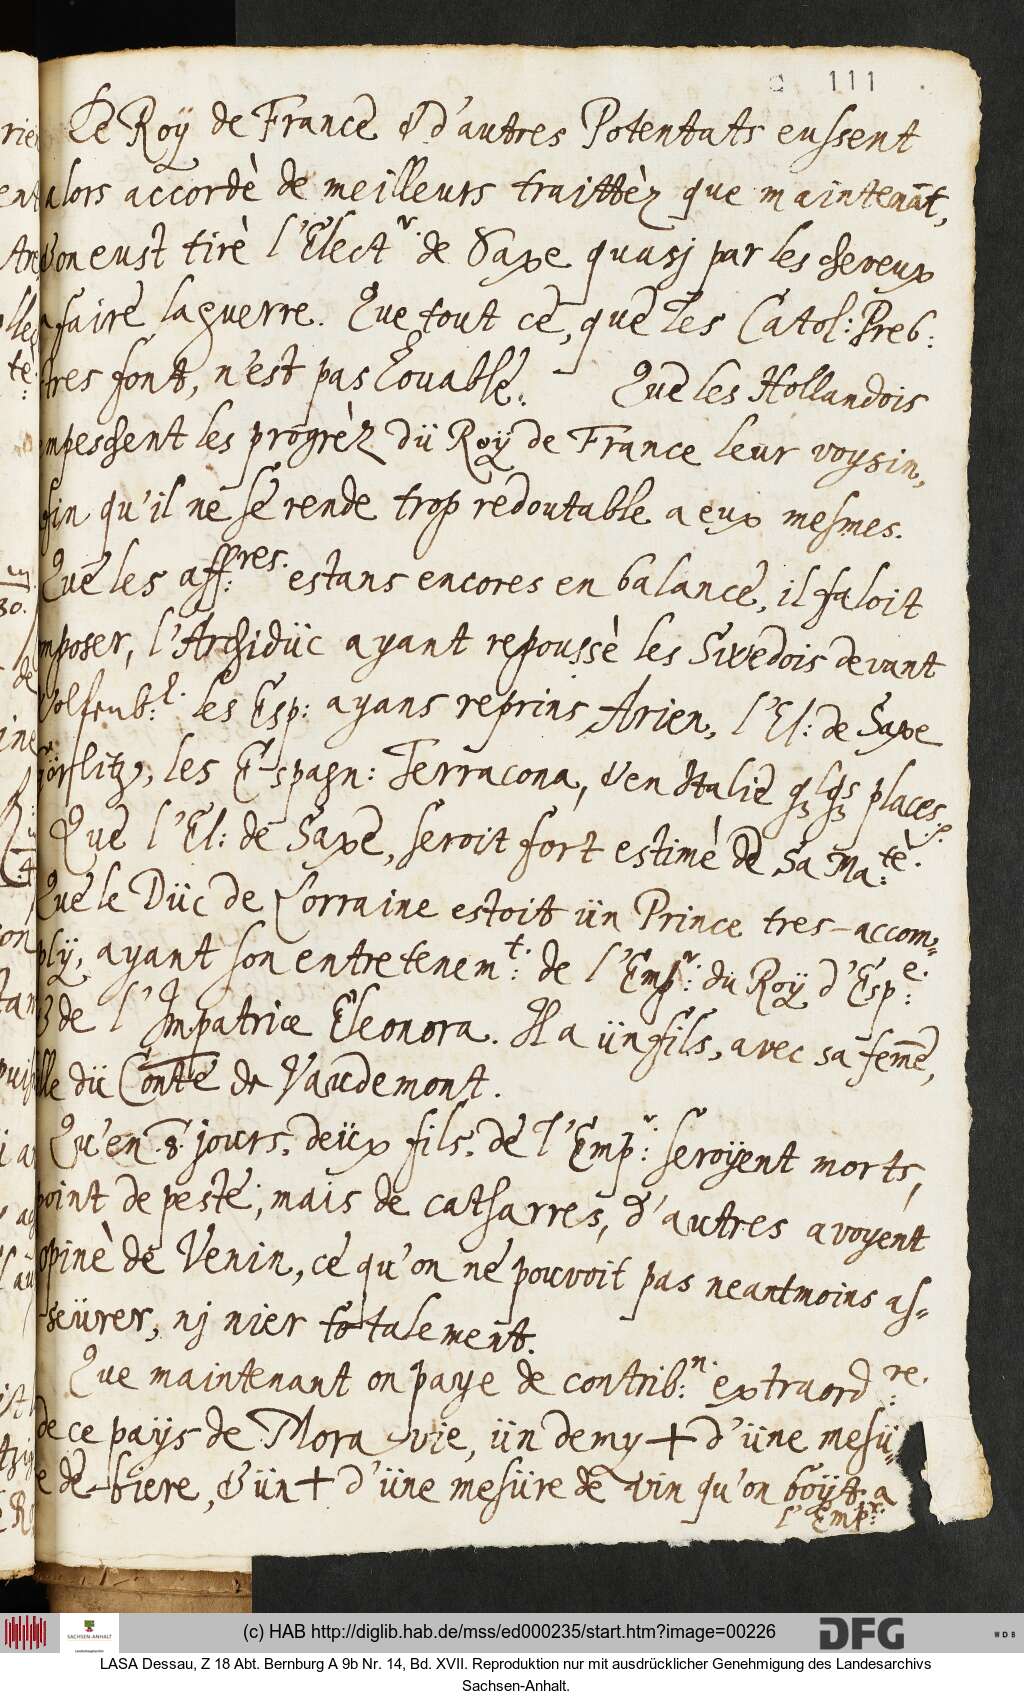 111
Le Roÿ de France & d'autres Potentats eussent
alors accordè de meilleurs traittèz que maintenāt,
& on eust tirè l'Elect.r de Saxe quasj par les cheveux
a faire la guerre. Que tout ce, que les Catol: Preb:
tres font, n'est pas Louable. Que les Hollandois
empeschent les progrèz dü Roÿ de France leur voysin,
afin qu'il ne se rende trop redoutable a eux mesmes.
Que les aff:res. estans encores en balance, il faloit
mposer, l'Archidüc ayant repoussè les Swedois devant
Wolfenb:l. les Esp: ayans reprins Arien, l'El: de Saxe
Görlitz, les Espagn: Terracona, & en Italie places
Que l'El: de Saxe, seroit fort estimè de Sa Ma:tè.
Que le Düc de Lorraine estoit ün Prince tres-accom-
plÿ, ayant son entretenem:t. de l'Emp:r. du Roÿ d'Esp:e.
& de l'Impatrice Eleonora. Il a ün fils, avec sa fem̄e,
fille dü Conte de Vaudemont.
Qu'en .8. jours, deüx fils, de l'Emp:r seroÿent morts,
point de peste, mais de catharres, d'autres avoyent
opinè de Venin, ce qu'on ne pouvoit pas neantmoins as-
-seürer, nj nier totalement.
Que maintenant on paye de contrib:n. extraord:re.
de ce paÿs de Moravie, ün demy + d'üne mesü-
re de biere, & ün + d'üne mesüre de vin qu'on boÿt. a
l'Emp:r.
(c) HAB http://diglib.hab.de/mss/ed000235/start.htm?image=00226
SACHSEN-ANHALT
DFG
WDB
LASA Dessau, Z 18 Abt. Bernburg A 9b Nr. 14, Bd. XVII. Reproduktion nur mit ausdrücklicher Genehmigung des Landesarchivs
Sachsen-Anhalt.